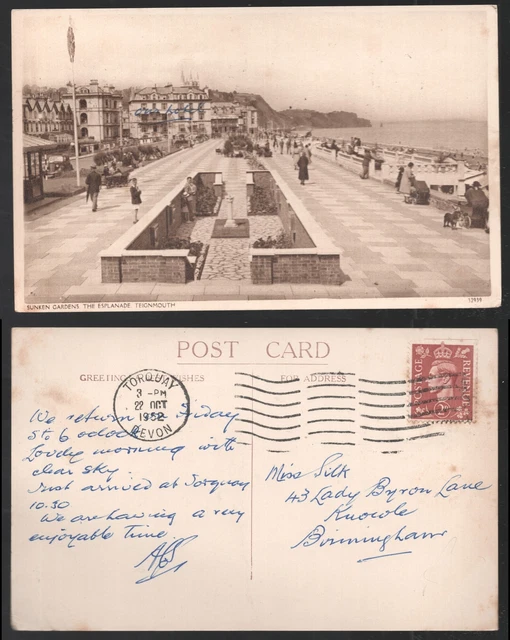 SUNKEN GARDENS, THE ESPLANADE, TEIGNMOUTH
12939
POST CARD
GREETINGS WISHES
FOR ADDRESS
TORQUAY
3 - PM
22 OCT
1952
DEVON
POSTAGE REVENUE
We return Friday
5 to 6 oclock
Lovely morning with
clear sky.
Just arrived at Torquay
10.30
We are having a very
enjoyable time
Miss Silk
43 Lady Byron Lane
Knowle
Birmingham